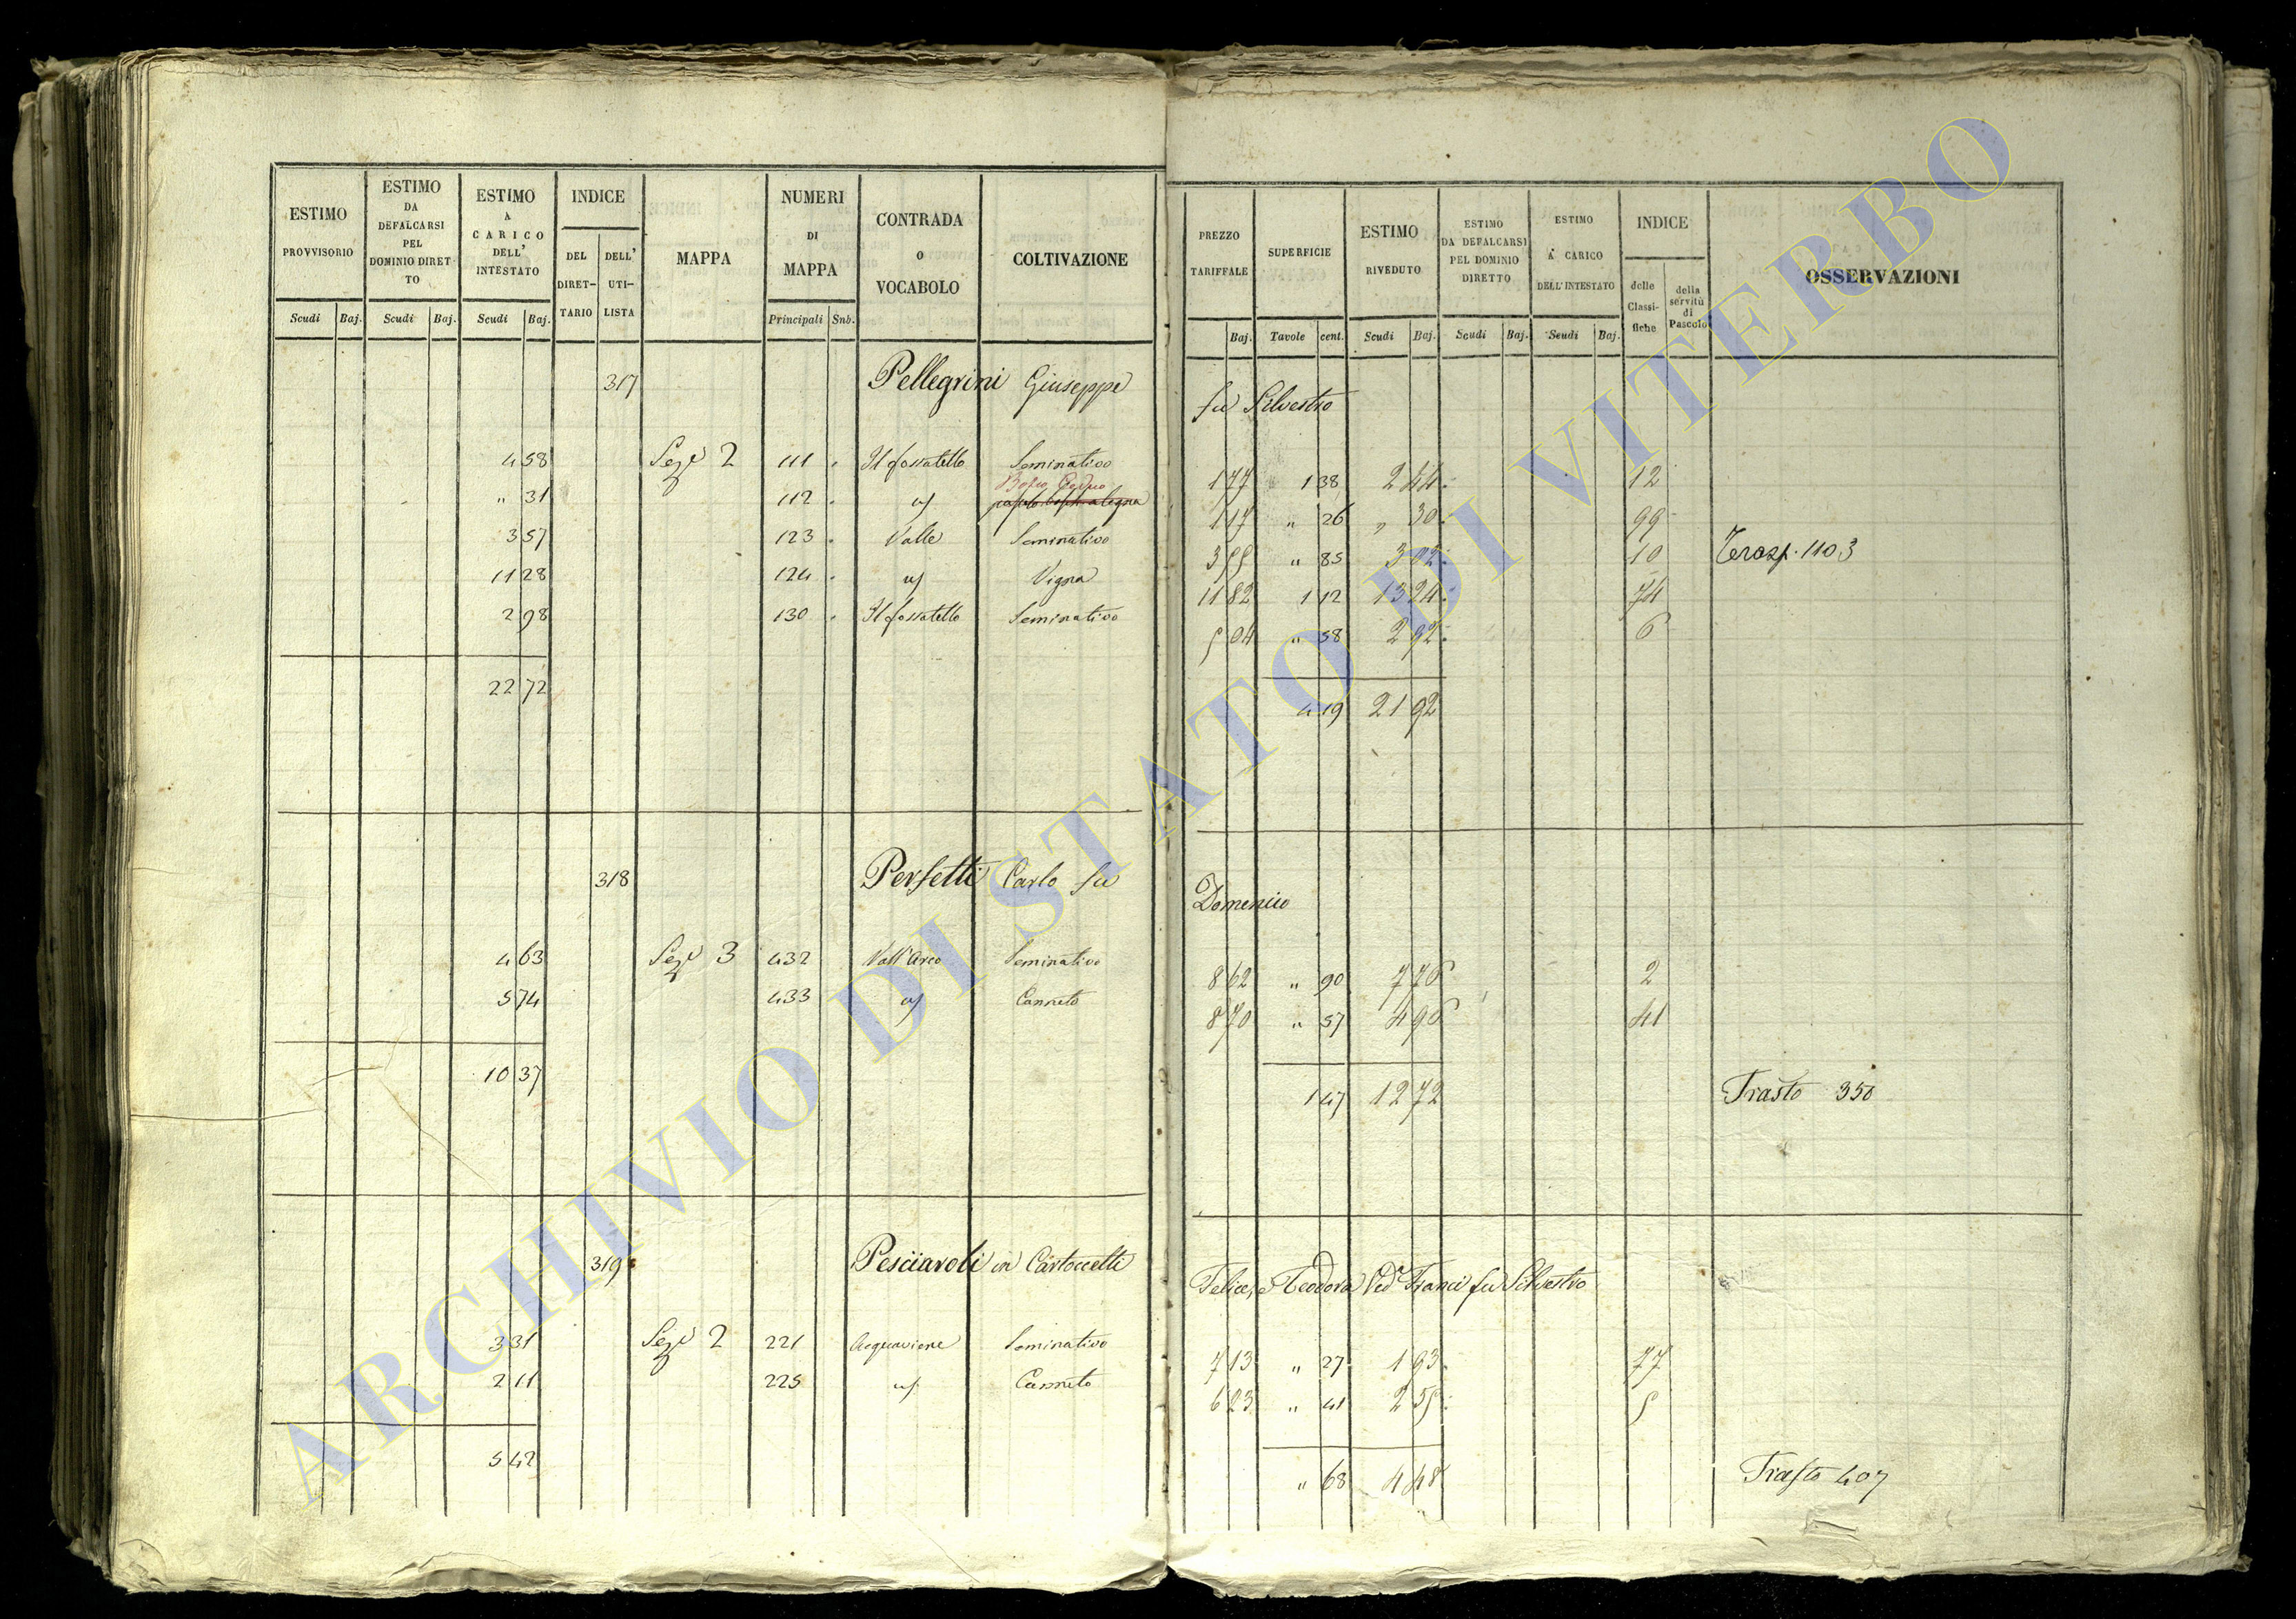 ESTIMO PROVVISORIO
ESTIMO DA DEFALCARSI PEL DOMINIO DIRETTO
ESTIMO A CARICO DELL' INTESTATO
INDICE
DEL DIRETTARIO
DELL' UTILISTA
MAPPA
NUMERI DI MAPPA
CONTRADA O VOCABOLO
COLTIVAZIONE
PREZZO TARIFFALE
SUPERFICIE
ESTIMO RIVEDUTO
ESTIMO DA DEFALCARSI PEL DOMINIO DIRETTO
ESTIMO A CARICO DELL' INTESTATO
INDICE
delle Classifiche
della servitù di Pascolo
OSSERVAZIONI
Scudi Baj. Scudi Baj. Scudi Baj. Principali Snb. Baj. Tavole cent. Scudi Baj. Scudi Baj. Scudi Baj.
317 Pellegrini Giuseppe fu Silvestro
4 58 Sez 2 111 Il fossatello Seminativo 1 77 1 38 2 44 12
Bosco Ceduo
" 31 112 1 17 " 26 " 30 99
3 57 123 Valle Seminativo 3 55 " 85 3 02 10 1103
11 28 124 Vigna 11 82 1 12 13 24 74
2 98 130 Il fossatello Seminativo 5 04 " 58 2 92 6
22 72 4 19 21 92
318 Perfetti Carlo fu Domenico
4 63 Sez 3 432 Vall'Arco Seminativo 8 62 " 90 7 76 2
5 74 433 Canneto 8 70 " 57 4 96 41
10 37 1 47 12 72 Trasto 350
319 Pesciaroli in Cartoccelli Felice, e Teodora Ved Franci fu Silvestro
3 31 Sez 2 221 Acquaviene Seminativo 7 13 " 27 1 93 77
2 11 225 Canneto 6 23 " 41 2 55 5
5 42 " 68 4 48 Trasto 407
ARCHIVIO DI STATO DI VITERBO